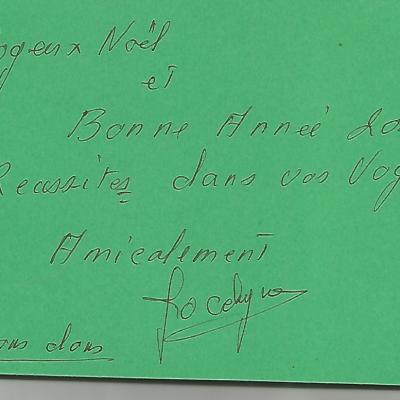 oyeux Noël
et
Bonne Année 20
Reussites dans vos Voy
Amicalement
Jocelyne
ons dans